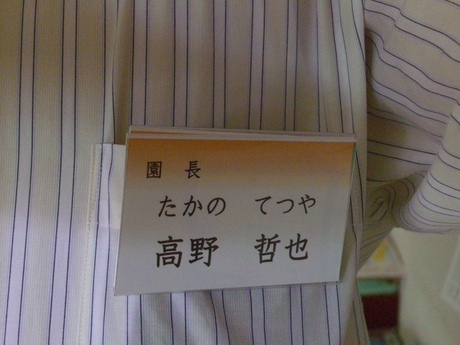 園 長
たかの てつや
高野 哲也